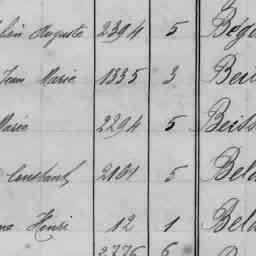 Auguste 2394 5 Bége
Jean Marie 1335 3 Beil
Marie 2294 5 Beiss
Constant 2101 5 Bela
Henri 12 1 Bela
2776 6